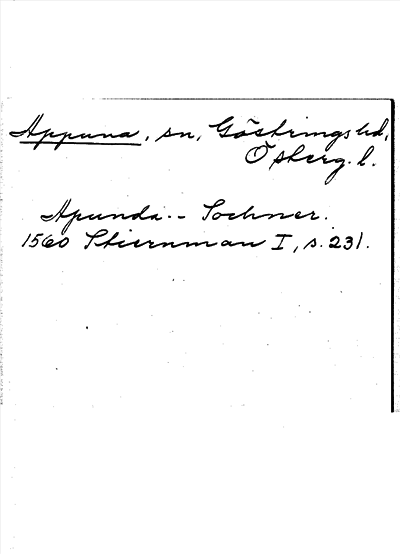 Appuna, sn, Göstrings hd,
Österg. l.
Apunda -- Sochner.
1560 Stiernman I, s. 231.